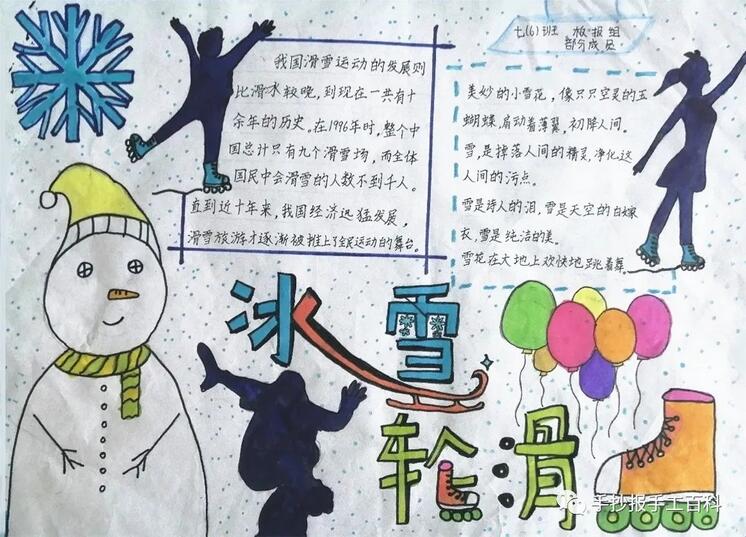 七(6)班 板报组
部分成员
我国滑雪运动的发展则
比滑冰较晚,到现在一共有十
余年的历史。在1996年时,整个中
国总计只有九个滑雪场,而全体
国民中会滑雪的人数不到千人。
直到近十年来,我国经济迅猛发展,
滑雪旅游才逐渐被推上了全民运动的舞台。
美妙的小雪花,像只只空灵的玉
蝴蝶,扇动着薄翼,初降人间。
雪,是掉落人间的精灵,净化这
人间的污点。
雪是诗人的泪,雪是天空的白嫁
衣,雪是纯洁的美。
雪花在大地上欢快地跳着舞。
冰雪
轮滑
手抄报手工百科